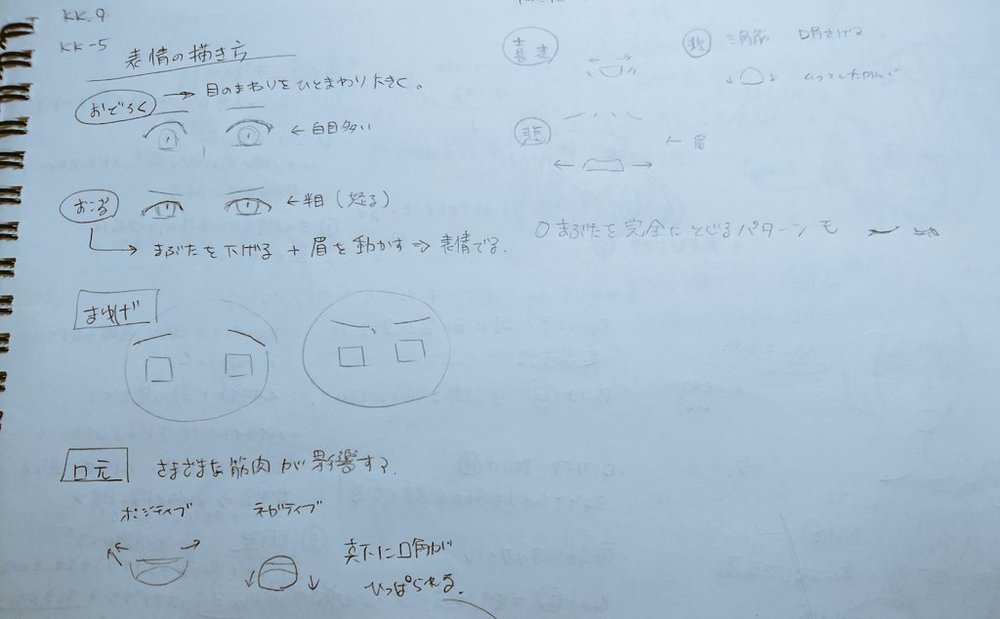 KK-9
KK-5
表情の描き方
おどろく → 目のまわりをひとまわり大きく。
← 白目多い
おこる ← 半目 (怒る)
→ まぶたを下げる + 眉を動かす ⇒ 表情でる。
まゆげ
口元 さまざまな筋肉が影響する。
ポジティブ ネガティブ
真下に口角が
ひっぱられる。
喜
三角筋 口角さげる
悲 ← 眉
○ まぶたを完全にとじるパターンも